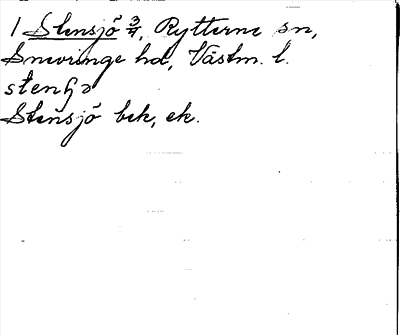 1 Stensjö 3/4, Rytterne sn,
Snevringe hd, Västm. l.
Stensjö bek, ek.